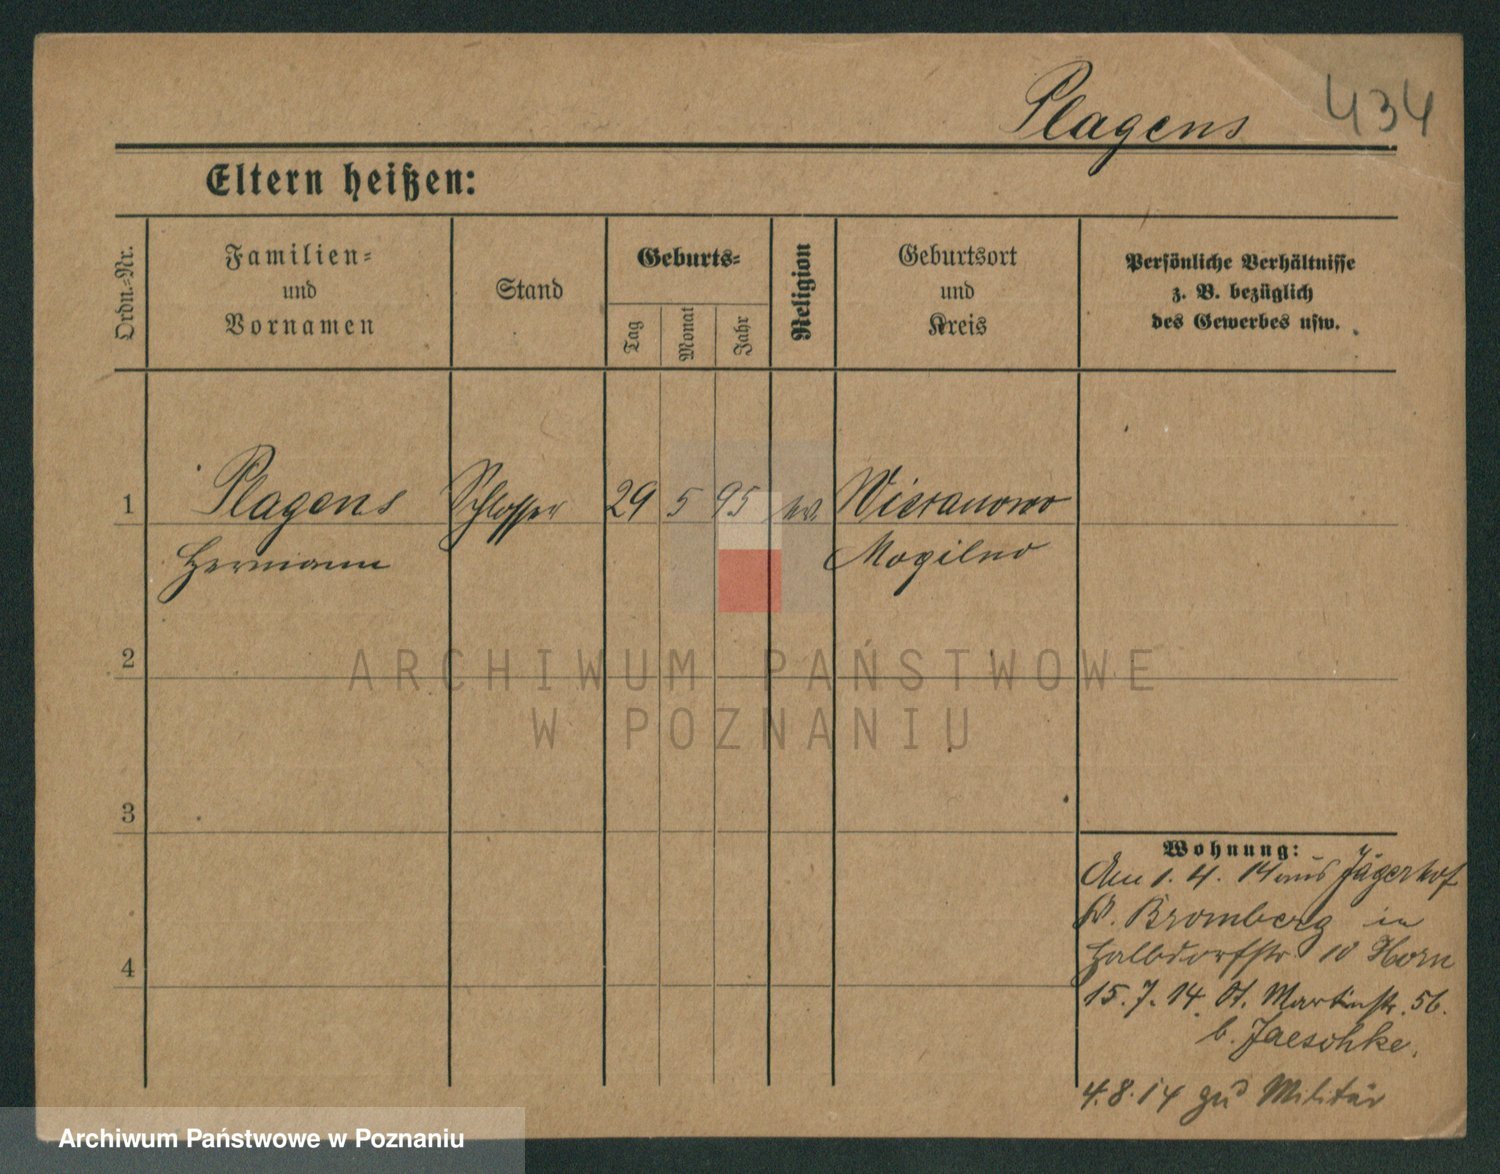 Plagens 434
Eltern heißen:
Ordn.-Nr.
Familien-
und
Vornamen
Stand
Geburts-
Tag
Monat
Jahr
Religion
Geburtsort
und
Kreis
Persönliche Verhältnisse
z. B. bezüglich
des Gewerbes usw.
1 Plagens Schlosser 29 5 95 ev. Wieranowo
Hermann Mogilno
2
3
4
Wohnung:
Am 1. 4. 14 aus Jägerhof
Kr. Bromberg in
Halbdorfstr 10 Horn
15. 7. 14. St. Martinstr. 56.
b. Jaeschke.
4. 8. 14 zum Militär
ARCHIWUM PAŃSTWOWE
W POZNANIU
Archiwum Państwowe w Poznaniu